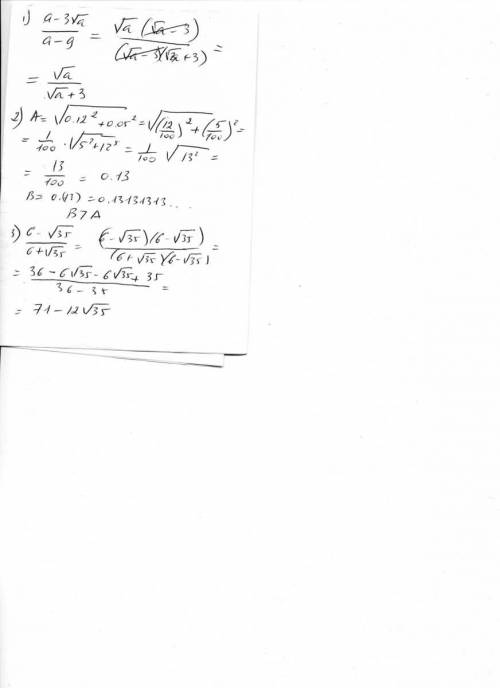 1) (a-3√a)/(a-9) = √a (√a-3)/((√a-3)(√a+3)) =
= √a/(√a+3)
2) A = √(0.12² + 0.05²) = √((12/100)² + (5/100)²) =
= 1/100 · √(5² + 12²) = 1/100 √(13²) =
= 13/100 = 0.13
B = 0.(13) = 0.13131313...
B > A
3) (6-√35)/(6+√35) = (6-√35)(6-√35)/((6+√35)(6-√35)) =
= (36-6√35-6√35+35)/(36-35) =
= 71-12√35